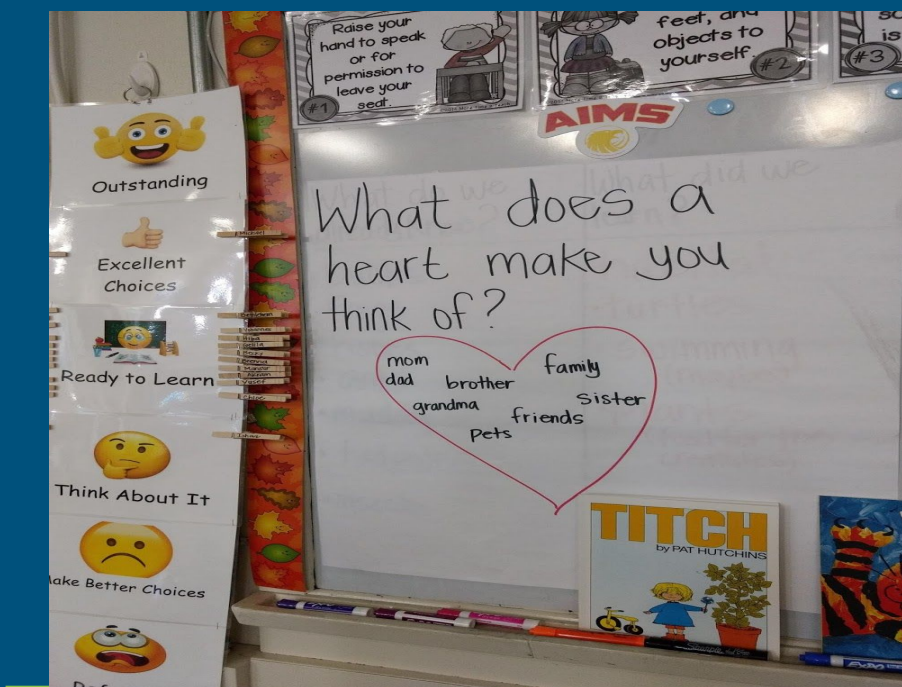 Raise your
hand to speak
or for
permission to
leave your
seat.
#1
feet, and
objects to
yourself.
#2
is
#3
AIMS
Outstanding
Excellent
Choices
Ready to Learn
Think About It
Make Better Choices
What do we
What did we
What does a
heart make you
think of?
mom
dad
brother
family
grandma
sister
friends
pets
TITCH
by PAT HUTCHINS
EXPO